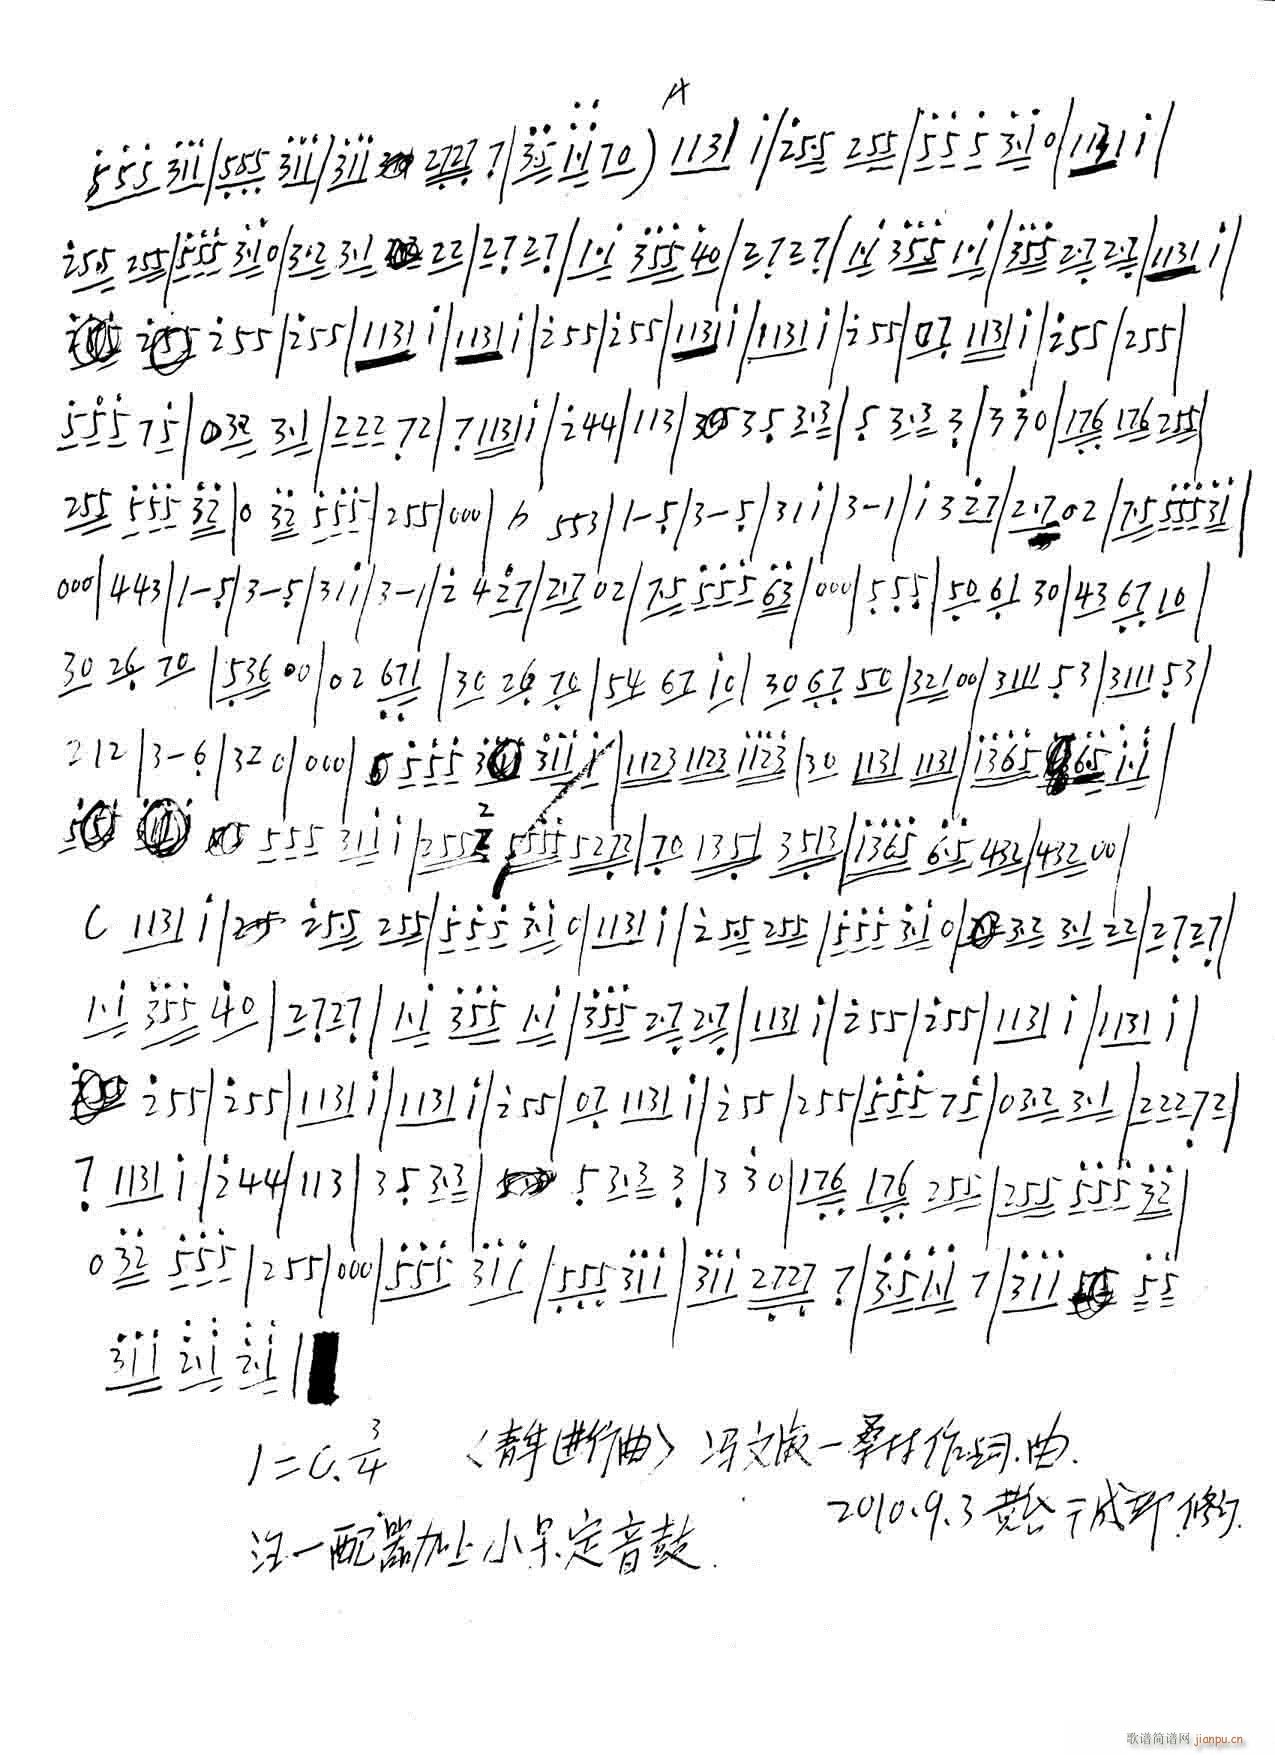 A
5 5 5 3 1 1 | 5 0 5 3 1 1 | 3 1 1 2 7 2 7 7 | 3·5 1·1 7 0 ) 1 1 3 1 i | 2 5·5 2 5 5 | 5 5 5 3·1 0 | 1 1 3 1 i |
2 5·5 2 5 5 | 5 5 5 3·1 0 | 3·2 3·1 2 2 | 2 7 2 7 | 1·i 3 5 5 4 0 | 2 7 2 7 | 1·i 3 5 5 1·i | 3 5 5 2·7 2·7 | 1 1 3 1 i |
2 5 5 | 2 5 5 | 1 1 3 1 i | 1 1 3 1 i | 2 5 5 | 2 5 5 | 1 1 3 1 i | 1 1 3 1 i | 2 5 5 | 0 7 1 1 3 1 i | 2 5 5 | 2 5 5 |
5 5 5 7 5 | 0 3 2 3·1 | 2 2 2 7 2 | 7 1 1 3 1 i | 2 4 4 | 1 1 3 | 3 5 3·3 | 5 3·3 3 | 3 3 0 | 1 7 6 1 7 6 2 5 5 |
2 5 5 5 5 5 3 2 | 0 3 2 5 5 5 | 2 5 5 | 0 0 0 | b 5 5 3 | 1 - 5 | 3 - 5 | 3 1 i | 3 - 1 | i 3 2 7 | 2·7 0 2 | 7·5 5 5 5 3 1 |
0 0 0 | 4 4 3 | 1 - 5 | 3 - 5 | 3 1 i | 3 - 1 | 2 4 2 7 | 2·7 0 2 | 7·5 5 5 5 6 3 | 0 0 0 | 5 5 5 | 5 0 6 1 3 0 | 4 3 6 7 1 0 |
3 0 2 6 7 0 | 5 3 6 0 0 | 0 2 6 7 1 | 3 0 2 6 7 0 | 5 4 6 7 i 0 | 3 0 6 7 5 0 | 3 2 1 0 0 | 3 1 1 1 5 3 | 3 1 1 1 5 3 |
2 1 2 | 3 - 6 | 3 2 0 | 0 0 0 | 5 5 5 3 1 1 i | 1 1 2 3 1 1 2 3 i i 2 3 | 3 0 1 1 3 1 1 1 3 1 | i 3 6 5 6·5 i·i |
5 5 5 3 1 i i | 2 5 5 2 5 5 5 5 5 2 7 2 | 7 0 1 3 5 1 3 5 1 3 | i 3 6 5 6·5 4 3 2 | 4 3 2 0 0 |
C 1 1 3 1 i | 2 5·5 2 5 5 | 5 5 5 3·i 0 | 1 1 3 1 i | 2 5·5 2 5 5 | 5 5 5 3·i 0 | 3·2 3·1 2 2 | 2 7 2 7 |
1·i 3 5 5 4 0 | 2 7 2 7 | 1·i 3 5 5 1·i | 3 5 5 2·7 2·7 | 1 1 3 1 i | 2 5 5 | 2 5 5 | 1 1 3 1 i | 1 1 3 1 i |
2 5 5 | 2 5 5 | 1 1 3 1 i | 1 1 3 1 i | 2 5 5 | 0 7 1 1 3 1 i | 2 5 5 | 2 5 5 | 5 5 5 7 5 | 0 3·2 3·1 | 2 2 2 7 2 |
7 1 1 3 1 i | 2 4 4 | 1 1 3 | 3 5 3·3 | 5 3·3 3 | 3 3 0 | 1 7 6 1 7 6 2 5 5 | 2 5 5 5 5 5 3 2 |
0 3 2 5 5 5 | 2 5 5 | 0 0 0 | 5 5 5 3 1 1 | 5 5 5 3 1 1 | 3 1 1 2 7 2 7 7 | 3·5 1·1 7 | 3 1 1 5 5
3 1 1 2·i 2·i |
1=C. 3/4 〈青年进行曲〉 冯文俊一桑林作词.曲.
2010.9.3 修订.
注一配器加上小号.定音鼓.
歌谱简谱网 jianpu.cn